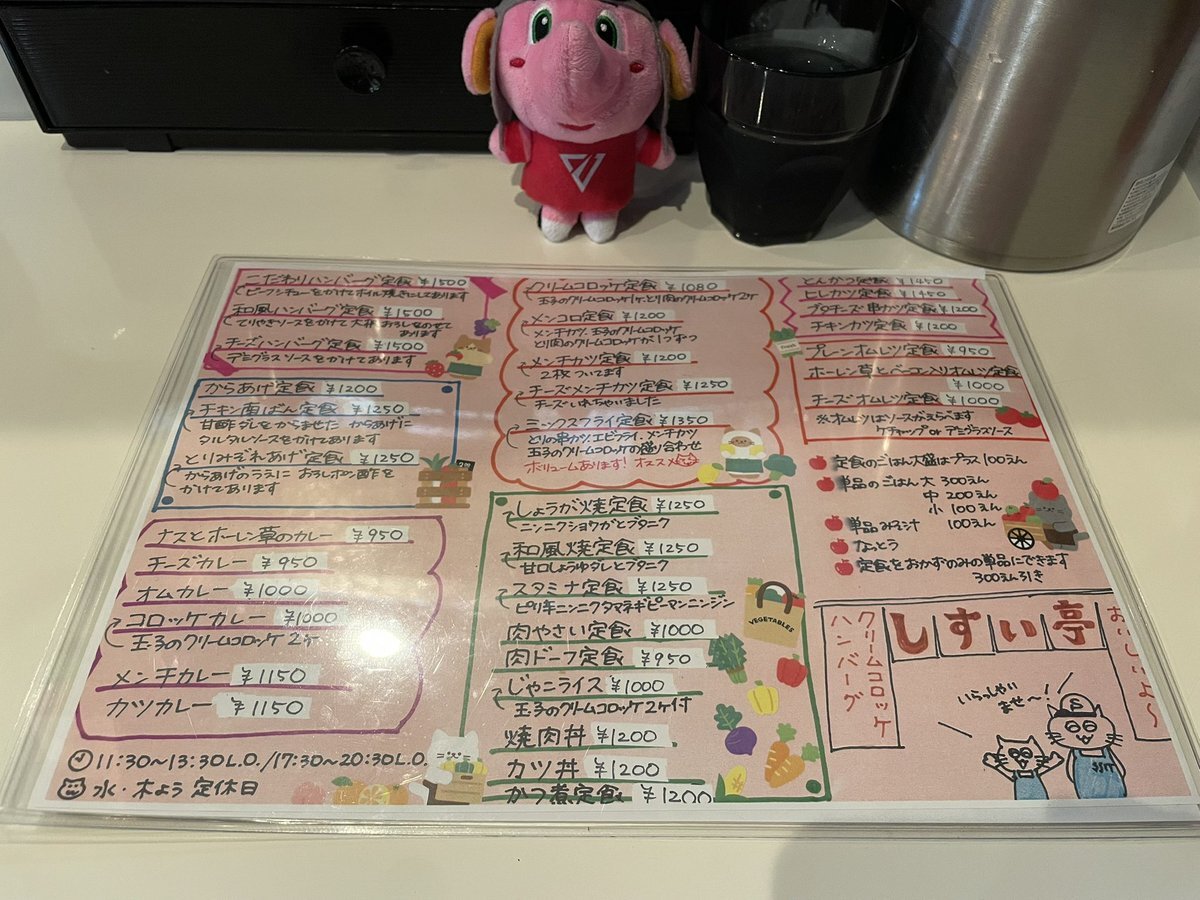 こだわりハンバーグ定食 ¥1500
ビーフシチューをかけてホイル焼きにしてあります
和風ハンバーグ定食 ¥1500
てりやきソースをかけて大根おろしをのせて
あります
チーズハンバーグ定食 ¥1500
デミグラスソースをかけてあります
からあげ定食 ¥1200
チキン南ばん定食 ¥1250
甘酢ダレをからませた からあげに
タルタルソースをかけてあります
とりみぞれあげ定食 ¥1250
からあげのうえに おろしポン酢を
かけてあります
ナスとホーレン草のカレー ¥950
チーズカレー ¥950
オムカレー ¥1000
コロッケカレー ¥1000
玉子のクリームコロッケ 2ケ
メンチカレー ¥1150
カツカレー ¥1150
11:30〜13:30L.O./17:30〜20:30L.O.
水・木よう 定休日
クリームコロッケ定食 ¥1080
玉子のクリームコロッケ1ケ、とり肉のクリームコロッケ2ケ
メンコロ定食 ¥1200
メンチカツ、玉子のクリームコロッケ
とり肉のクリームコロッケが1つずつ
メンチカツ定食 ¥1200
2枚ついてます
チーズメンチカツ定食 ¥1250
チーズいれちゃいました
ミックスフライ定食 ¥1350
とりの串カツ、エビフライ、メンチカツ
玉子のクリームコロッケの盛り合わせ
ボリュームあります! オススメ
しょうが焼定食 ¥1250
ニンニクショウガとブタニク
和風焼定食 ¥1250
甘口しょうゆダレとブタニク
スタミナ定食 ¥1250
ピリ辛ニンニクタマネギピーマンニンジン
肉やさい定食 ¥1000
肉ドーフ定食 ¥950
じゃこライス ¥1000
玉子のクリームコロッケ2ケ付
焼肉丼 ¥1200
カツ丼 ¥1200
かつ煮定食 ¥1200
VEGETABLES
とんかつ定食 ¥1450
ヒレカツ定食 ¥1450
ブタチーズ串カツ定食 ¥1200
チキンカツ定食 ¥1200
プレーンオムレツ定食 ¥950
ホーレン草とベーコン入りオムレツ定食
¥1000
チーズオムレツ定食 ¥1000
※オムレツはソースがえらべます
ケチャップ or デミグラスソース
定食のごはん大盛はプラス100えん
単品のごはん 大 300えん
中 200えん
小 100えん
単品みそ汁 100えん
なっとう
定食をおかずのみの単品にできます
300えん引き
しすい亭
クリームコロッケ
ハンバーグ
おいしいよ〜
いらっしゃい
ませ〜!
S
SSIT